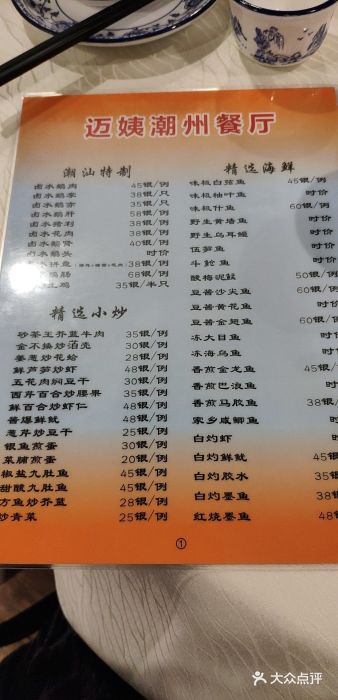 迈姨潮州餐厅
潮汕特制
卤水鹅肉 45银/例
卤水鹅掌 38银/只
卤水鹅翅 38银/只
卤水鹅肝 58银/例
卤水猪利 38银/例
卤水花肉 38银/例
卤水鹅肾 40银/例
卤水鹅头 时价
水拼盘 38银/例
鹅肠 68银/例
鸡 35银/半只
精选小炒
砂茶王芥蓝牛肉 35银/例
金不换炒滘壳 30银/例
姜葱炒花蛤 28银/例
鲜芦笋炒虾 48银/例
五花肉焖豆干 30银/例
西芹百合炒腰果 35银/例
鲜百合炒虾仁 48银/例
酱爆鲜鱿 48银/例
葱芹炒豆干 25银/例
银鱼煎蛋 30银/例
菜脯煎蛋 20银/例
椒盐九肚鱼 45银/例
甜酸九肚鱼 45银/例
方鱼炒芥蓝 28银/例
炒青菜 25银/例
精选海鲜
味极白荞鱼 45银/例
味极柚叶鱼 时价
味极什鱼 60银/例
野生黄墙鱼 时价
野生乌耳鳗 时价
伍笋鱼 时价
斗鲳鱼 时价
酸梅泥鯭 50银/例
豆酱沙尖鱼 60银/例
豆酱黄花鱼
豆酱金翅鱼 60银
冻大目鱼 时价
冻海乌鱼 时价
香煎金龙鱼 45银
香煎巴浪鱼 时价
香煎马胶鱼 38银/
家乡咸鲫鱼 时价
白灼虾 时价
白灼鲜鱿 35银
白灼胶水 35银
白灼墨鱼 38
红烧墨鱼 48
①
大众点评